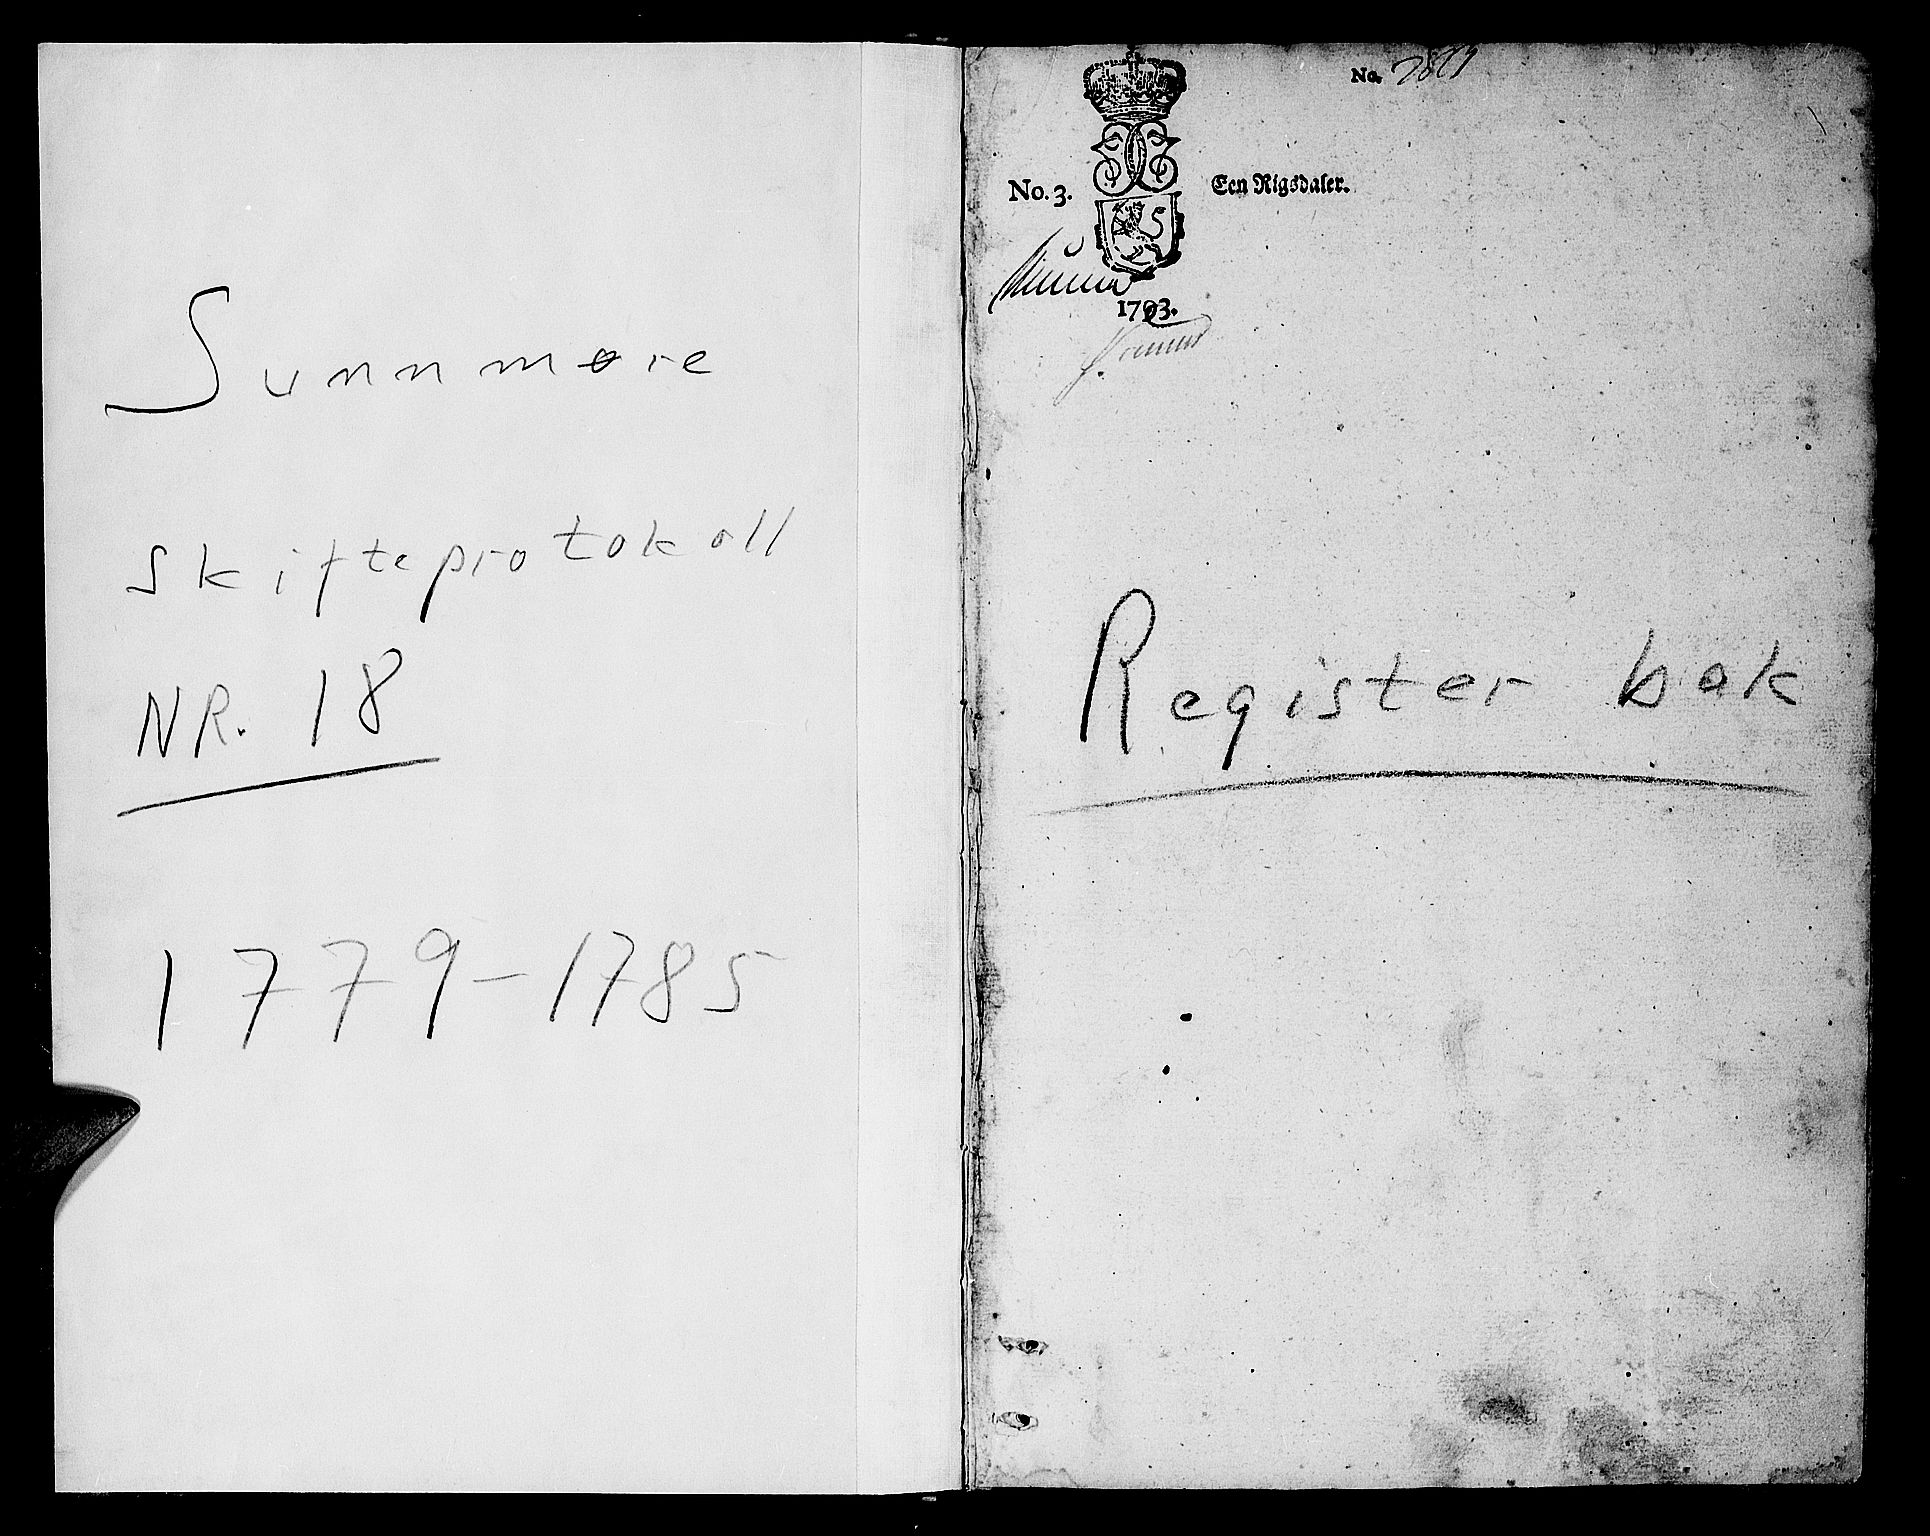 Sunnmøre
Skifteprotokoll
NR. 18
1779-1785
No.
No. 3.
Een Rigsdaler.
1793.
Register bak